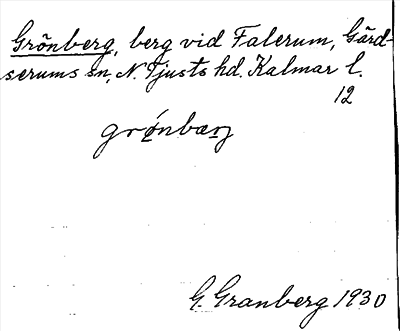 Grönberg, berg vid Falerum, Gärd-
serums sn, N. Tjusts hd. Kalmar l.
12
grǿnbærj
G. Granberg 1930